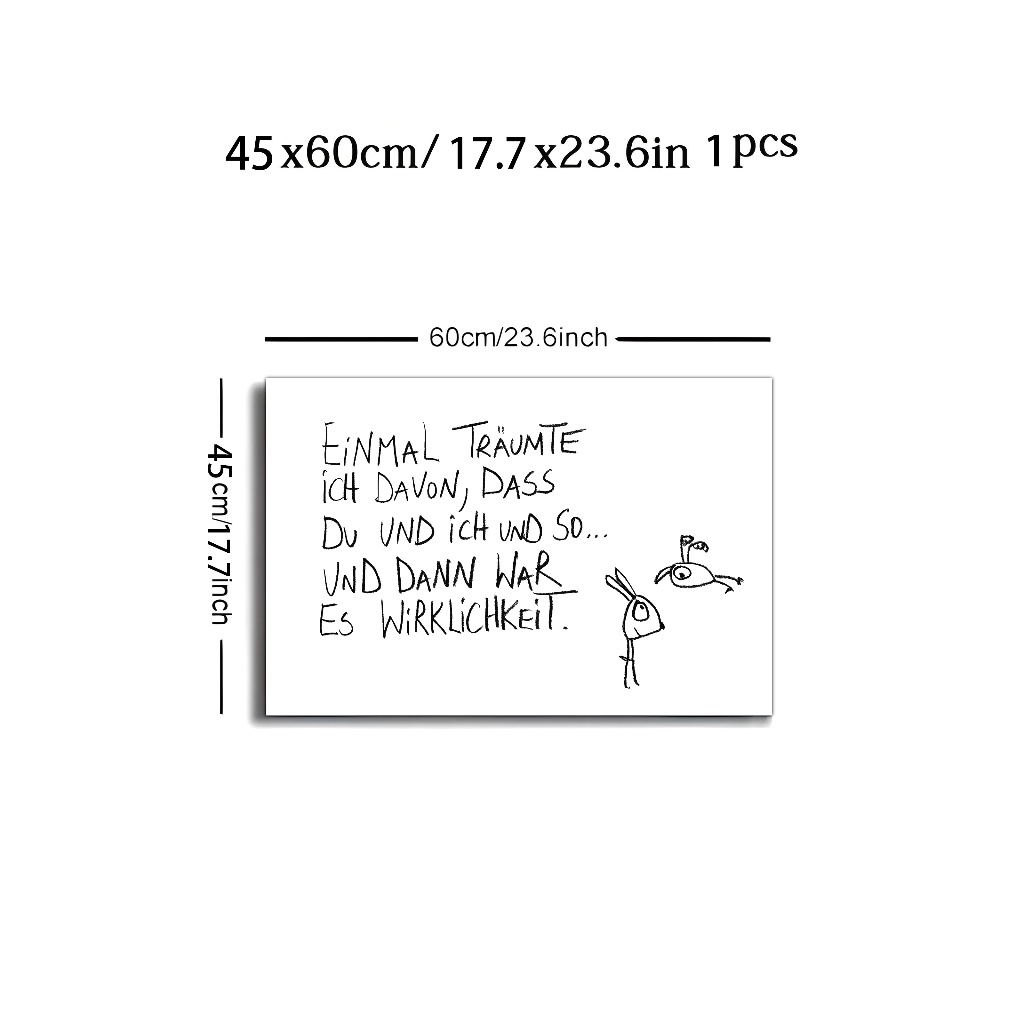 45x60cm/ 17.7x23.6in 1pcs
60cm/23.6inch
45cm/17.7inch
EiNMAL TRÄUMTE
iCH DAVON, DASS
DU UND iCH UND SO...
UND DANN WAR
ES WiRKLiCHKEiT.